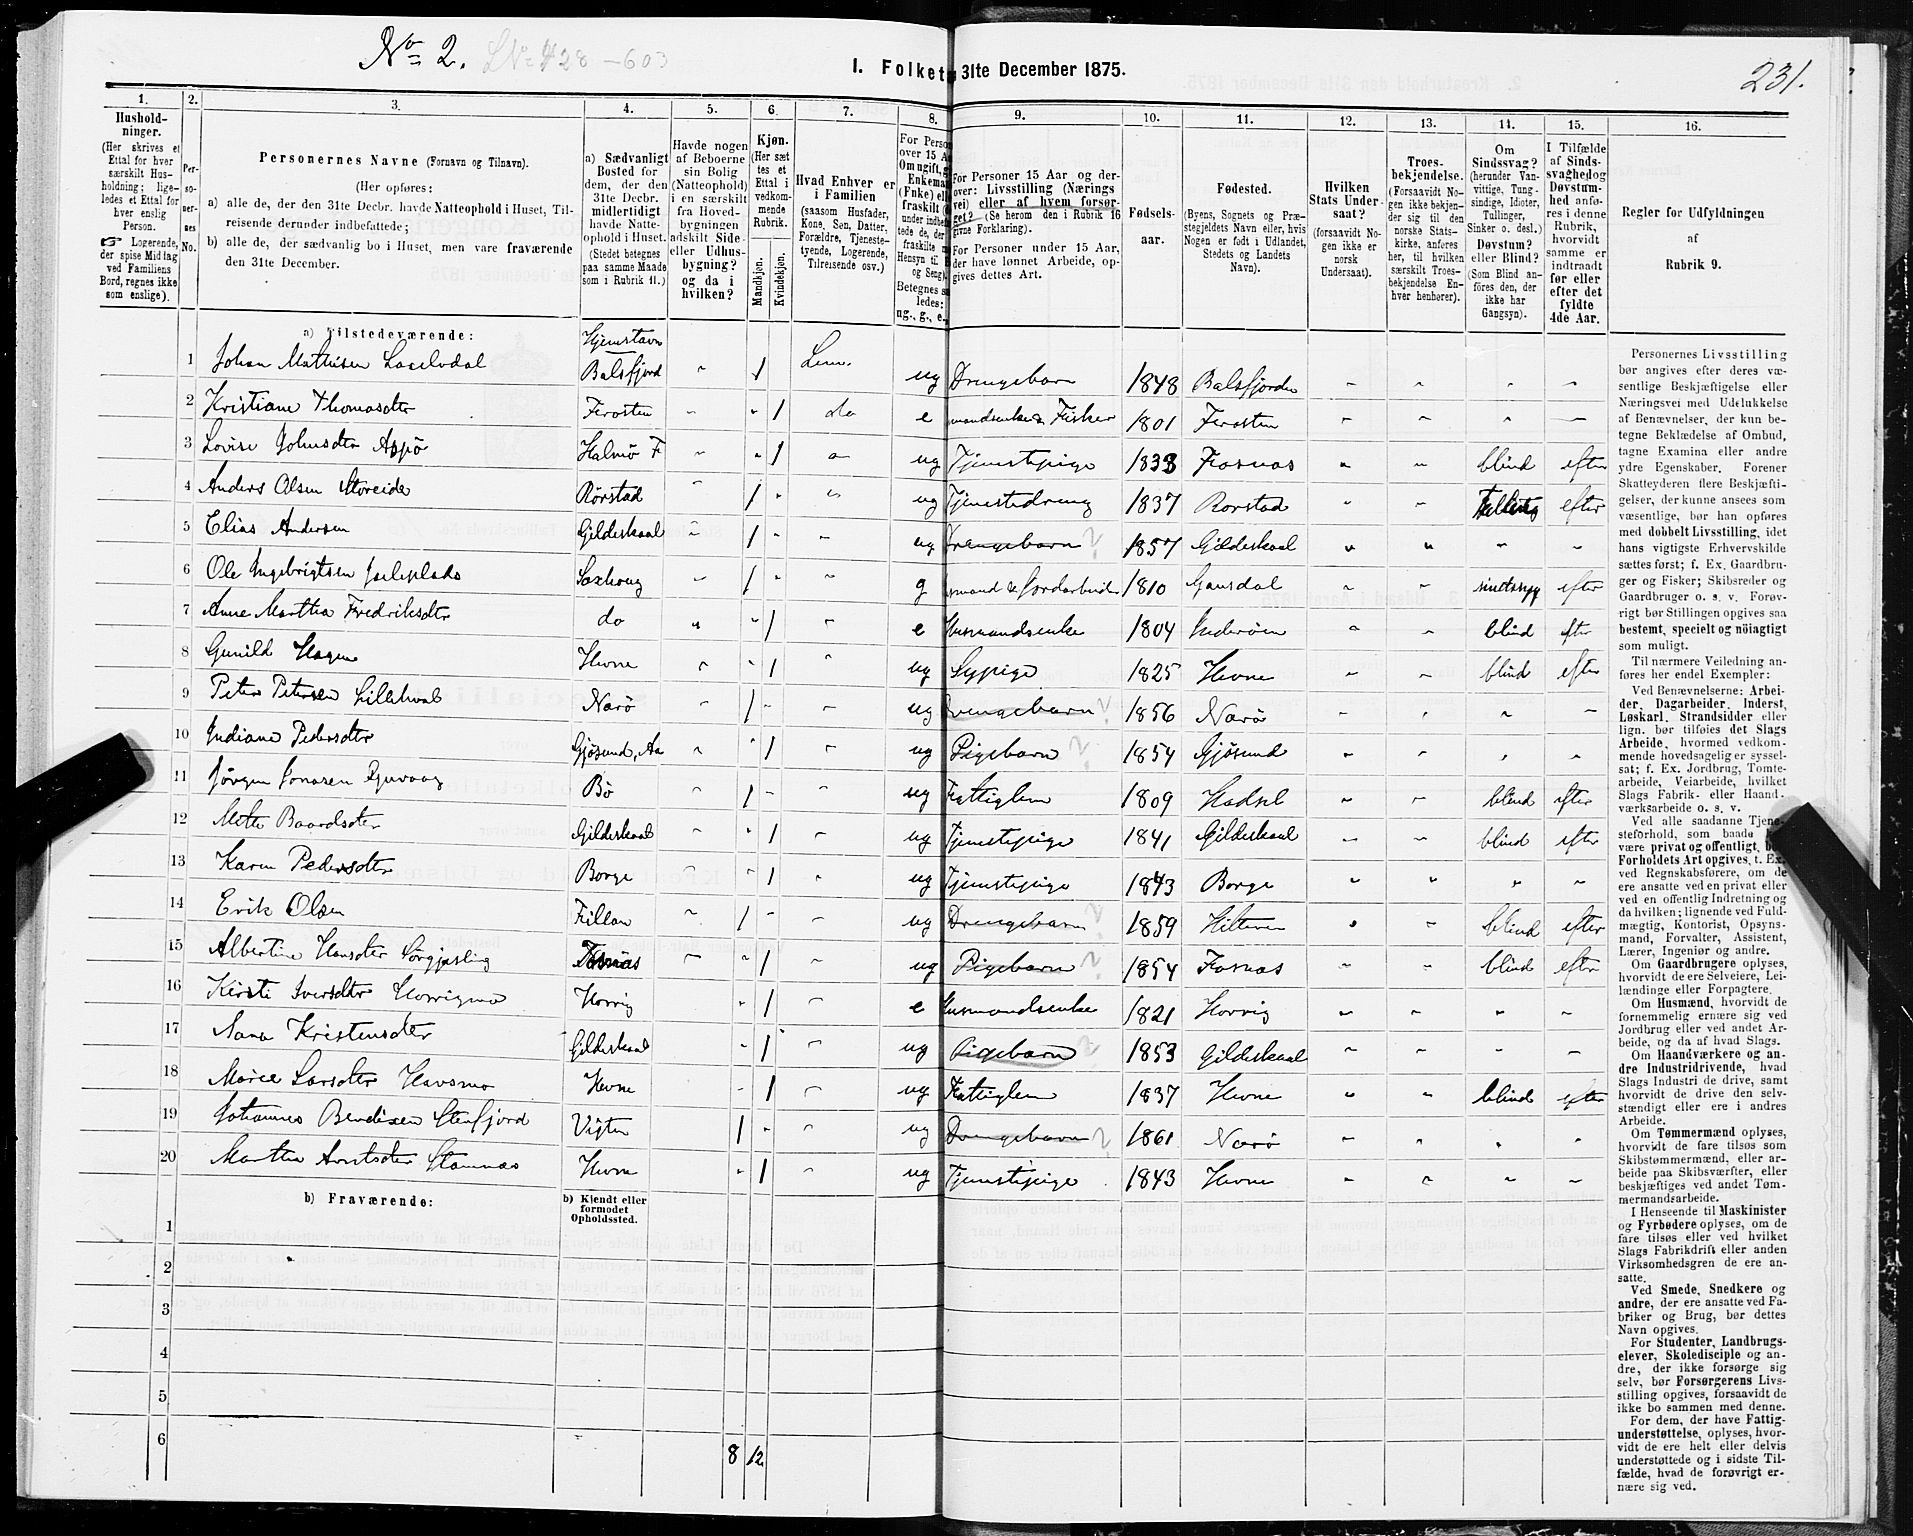 No 2. LNr 428-603
I. Folket
31te December 1875.
231.
1. 2. 3. 4. 5. 6. 7. 8. 9. 10. 11. 12. 13. 14. 15. 16.
Hushold-
ninger.
(Her skrives et
Ettal for hver
særskilt Hus-
holdning; lige-
ledes et Ettal for
hver enslig
Person.
☞ Logerende,
der spise Middag
ved Familiens
Bord, regnes ikke
som enslige).
Per-
so-
ner-
nes
No.
Personernes Navne (Fornavn og Tilnavn).
(Her opføres:
a) alle de, der den 31te Decbr. havde Natteophold i Huset, Til-
reisende derunder indbefattede;
b) alle de, der sædvanlig bo i Huset, men vare fraværende
den 31te December.
a) Sædvanligt
Bosted for
dem, der den
31te Decbr.
midlertidigt
havde Natte-
ophold i Huset.
(Stedet betegnes
paa samme Maade
som i Rubrik 11.)
Havde nogen
af Beboerne
sin Bolig
(Natteophold)
i en særskilt
fra Hoved-
bygningen
adskilt Side-
eller Udhus-
bygning?
og da i
hvilken?
Kjøn.
(Her sæt
tes et
Ettal i
vedkom-
mende
Rubrik.
Mandkjøn.
Kvindekjøn.
Hvad Enhver er
i Familien
(saasom Husfader,
Kone, Søn, Datter,
Forældre, Tjeneste-
tyende, Logerende,
Tilreisende osv.)
For Perso
over 15 A
Om ugift, g
Enkema
(Fnke) ell
fraskilt (
under indbe
tede de, der
fraskilte m
Hensyn til B
og Seng).
Betegnes sa
ledes:
ug., g., e.,
For Personer 15 Aar og der-
over: Livsstilling (Nærings
vei) eller af hvem forsør-
get? (Se herom den i Rubrik 16
givne Forklaring).
For Personer under 15 Aar,
der have lønnet Arbeide, op-
gives dettes Art.
Fødsels-
aar.
Fødested.
(Byens, Sognets og Præ-
stegjeldets Navn eller, hvis
Nogen er født i Udlandet,
Stedets og Landets
Navn).
Hvilken
Stats Under-
saat?
(forsaavidt No-
gen ikke er
norsk
Undersaat).
Troes-
bekjendelse.
(Forsaavidt No-
gen ikke bekjen-
der sig til den
norske Stats-
kirke, anføres
her, til hvilken
særskilt Troes-
bekjendelse En-
hver henhører).
Om
Sindssvag?
(herunder Van-
vittige, Tung-
sindige, Idioter,
Tullinger,
Sinker o. desl.)
Døvstum?
eller Blind?
(Som Blind an-
føres den, der
ikke har
Gangsyn).
I Tilfælde
af Sinds-
svaghed og
Døvstum-
hed anfø-
res i denne
Rubrik,
hvorvidt
samme er
indtraadt
før eller
efter det
fyldte
4de Aar.
Regler for Udfyldningen
af
Rubrik 9.
a) Tilstedeværende: Hjemstavn
1 Johan Mathisen Balsfjord 1 Lem. ug Drengebarn 1848 Balsfjorden
2 Kristiane Thomasdtr Frosten 1 do e Fisker 1801 Frosten
3 Lovise Johnsdtr Appø Halmø F 1 ug Tjenestepige 1833 Fosnæs blind efter
4 Anders Olsen Storeide Rørstad 1 ug Tjenestedreng 1837 Rørstad efter
5 Elias Andersen Gildeskaal 1 ug Drengebarn ? 1857 Gildeskaal
6 Ole Ingebrigtsen 1 g 1810 efter
7 Anne Martha Fredriksdtr do 1 e Husmandsenke 1804 Inderøen blind efter
8 Gunild Hagen Hevne 1 ug Sypige 1825 Hevne blind efter
9 Peter Petersen Nærø 1 ug Drengebarn ? 1856 Nærø
10 Indiane Pedersdtr Gjøsund, Aa 1 ug Pigebarn ? 1854 Gjøsund
11 Jørgen Jonasen Bø 1 ug Fattiglem 1809 Hadsel blind efter
12 Mette Baardsdtr Gildeskaal 1 ug Tjenestepige 1841 Gildeskaal blind efter
13 Karen Pedersdtr Borge 1 ug Tjenestepige 1843 Borge
14 Erik Olsen Fillan 1 ug Drengebarn ? 1859 Hitteren blind efter
15 Albertine Hansdtr Fosnæs 1 ug Pigebarn ? 1854 Fosnæs blind efter
16 Kirsti Iversdtr Horrig 1 e Husmandsenke 1821 Horrig
17 Kristensdtr Gildeskaal 1 ug Pigebarn ? 1853 Gildeskaal
18 Larsdtr Havsmo Hevne 1 ug Fattiglem 1837 Hevne blind efter
19 Johannes Bendixen Stenfjord Vigten 1 ug Drengebarn ? 1861 Nærø
20 Martha Arntsdtr Stamnæs Hevne 1 ug Tjenestepige 1843 Hevne
b) Fraværende:
b) Kjendt eller
formodet
Opholdssted.
1
2
3
4
5
6
8 12
Personernes Livsstilling
bør angives efter deres væ-
sentlige Beskjæftigelse eller
Næringsvei med Udelukkelse
af Benævnelser, der kun be-
tegne Beklædelse af Ombud,
tagne Examina eller andre
ydre Egenskaber. Forener
Skatteyderen flere Beskjæfti-
gelser, der kunne ansees som
væsentlige, bør han opføres
med dobbelt Livsstilling, idet
hans vigtigste Erhvervskilde
sættes først; f. Ex. Gaardbru-
ger og Fisker; Skibsreder og
Gaardbruger o. s. v. Forøv-
rigt bør Stillingen opgives saa
bestemt, specielt og nöiagtigt
som muligt.
Til nærmere Veiledning an-
føres her endel Exempler:
Ved Benævnelserne: Arbei-
der, Dagarbeider, Inderst,
Løskarl, Strandsidder eller
lign. bør tilføies det Slags
Arbeide, hvormed vedkom-
mende hovedsagelig er syssel-
sat; f. Ex. Jordbrug, Tomte-
arbeide, Veiarbeide, hvilket
Slags Fabrik- eller Haand-
værksarbeide o. s. v.
Ved alle saadanne Tjene-
steforhold, som baade k
være privat og offentligt, b
Forholdets Art opgives, t. Ex.
ved Regnskabsførere, om de
ere ansatte ved en privat eller
ved en offentlig Indretning og
da hvilken; lignende ved Fuld-
mægtig, Kontorist, Opsyns-
mand, Forvalter, Assistent,
Lærer, Ingeniør og andre.
Om Gaardbrugere oplyses,
hvorvidt de ere Selveiere, Lei-
lændinge eller Forpagtere.
Om Husmænd, hvorvidt de
fornemmelig ernære sig ved
Jordbrug eller ved andet Ar-
beide, og da af hvad Slags.
Om Haandværkere og an-
dre Industridrivende, hvad
Slags Industri de drive, samt
hvorvidt de drive den selv-
stændigt eller ere i andres
Arbeide.
Om Tømmermænd oplyses,
hvorvidt de fare tilsøs som
Skibstømmermænd, eller ar-
beide paa Skibsværfter, eller
beskjæftiges ved andet Tøm-
mermandsarbeide.
I Henseende til Maskinister
og Fyrbødere oplyses, om de
fare tilsøs eller ved hvilket
Slags Fabrikdrift eller anden
Virksomhedsgren de ere an-
satte.
Ved Smede, Snedkere og
andre, der ere ansatte ved Fa-
briker og Brug, bør dettes
Navn opgives.
For Studenter, Landbrugs-
elever, Skoledisciple og an-
dre, der ikke forsørge sig
selv, bør Forsørgerens Livs-
stilling opgives, forsaavidt de
ikke bo sammen med denne.
For dem, der have Fattig-
understøttelse, oplyses, hvor-
vidt de ere helt eller delvis
understøttede og i sidste Til-
fælde, hvad de forøvrigt er-
nære sig ved.